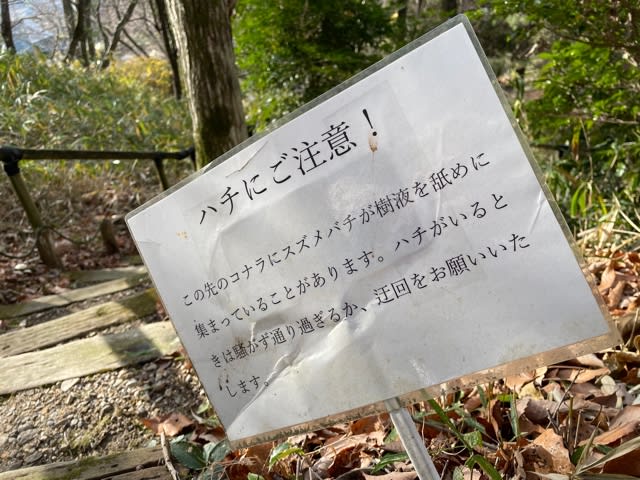 ハチにご注意！
この先のコナラにスズメバチが樹液を舐めに
集まっていることがあります。ハチがいると
きは騒がず通り過ぎるか、迂回をお願いいた
します。